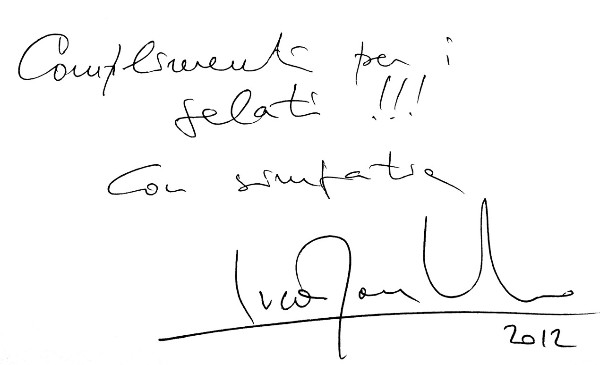 Complimenti per i
gelati !!!
Con simpatia
2012